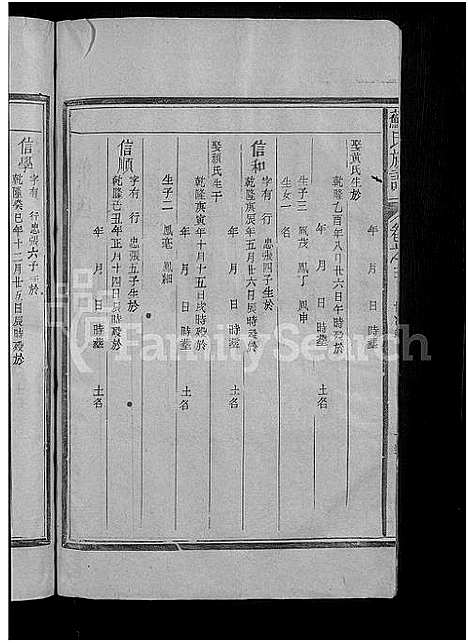 蘇氏族譜
娶黃氏生於
乾隆乙酉年八月廿六日午時歿於
年 月 日 時葬 土名
生子三 鳳茂 鳳丁 鳳申
生女一名
信和 字有 行 忠張四子生於
乾隆庚辰年五月廿六日辰時歿於
年 月 日 時葬 土名
娶顏氏生于
乾隆庚寅年十月十五日戌時歿於
年 月 日 時葬 土名
生子二 鳳亮 鳳細
信順 字有 行 忠張五子生於
乾隆己丑年正月十四日辰時歿於
年 月 日 時葬 土名
信學 字有 行 忠張六子生於
乾隆癸巳年十二月廿五日辰時歿於
FamilySearch